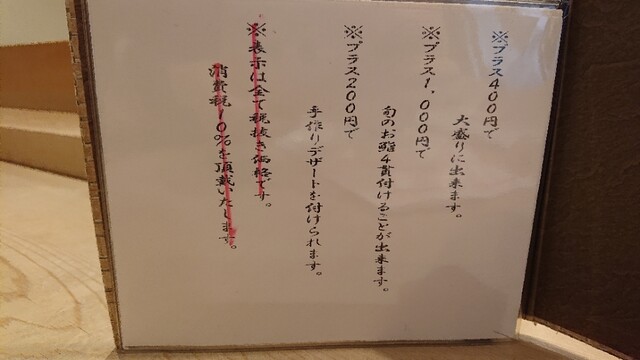 ※プラス400円で
大盛りに出来ます。
※プラス1,000円で
旬のお鮨4貫付けることが出来ます。
※プラス200円で
手作りデザートを付けられます。
※表示は全て税抜き価格です。
消費税10%を頂戴いたします。